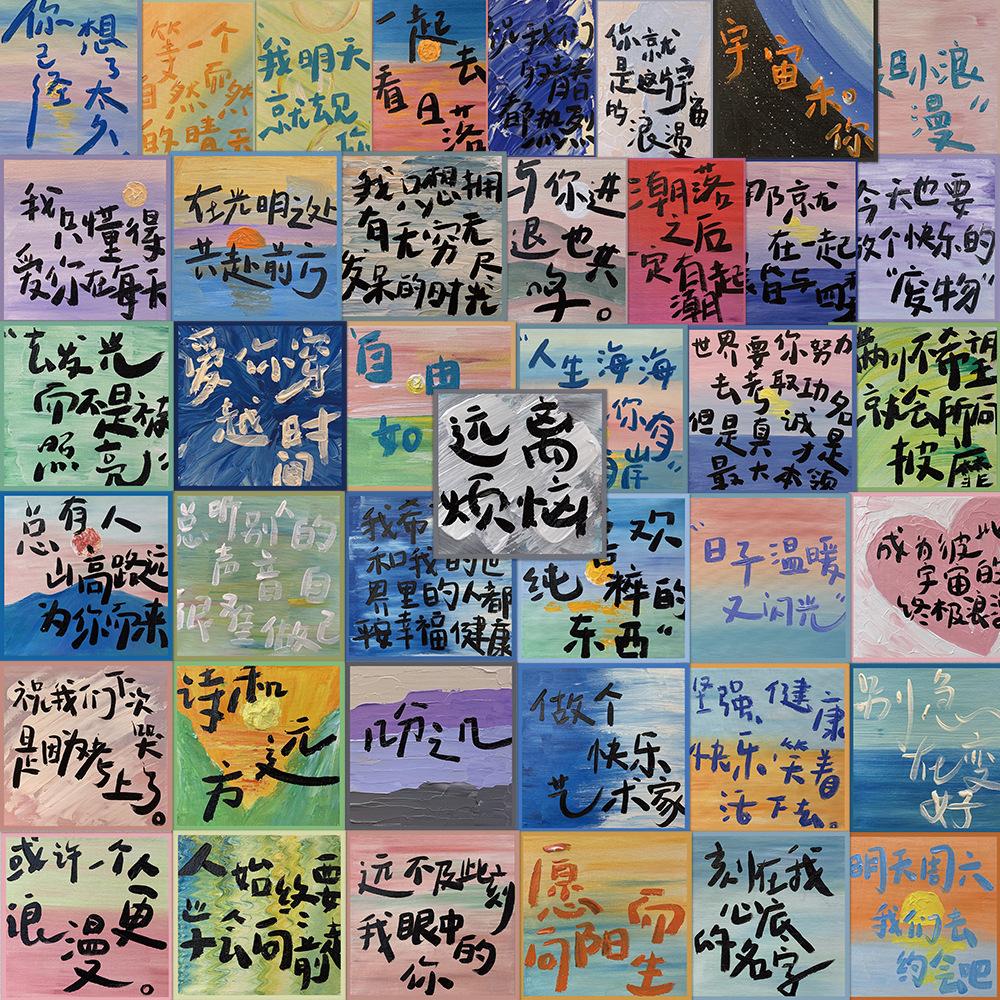 你已经
想了太久
等一个
自然而然
的晴天
我明天
就去见
你
一起去
看日落
祝我们
的青春
都热烈
你就
是这宇宙
的浪漫
宇宙
和你
浪
漫”
我只懂得
爱你在每天
在光明之处
共赴前方
我只想拥
有无穷无尽
发呆的时光
与你进
退也共
呼。
潮落
之后
一定有起
潮
那就
在一起
与四
今天也要
做个快乐的
“废物”
“去发光
而不是被
照亮”
爱你穿
越时
间
“自由
如
“人生海海
你有
岸”
世界要你努力
去考取功名
但是真诚才是
最大本领
不希望
就会所向
披靡
远离
烦恼
总有人
山高路远
为你而来
总听别人的
声音
很难做自己
我希
和我的世
界里的人都
平安幸福健康
喜欢
纯粹的
东西”
“日子温暖
又闪光”
成为彼此
宇宙的
终极浪漫
祝我们下次哭
是因为考上了。
诗和
远方
几分之几
做个
快乐
艺术家
坚强、健康
快乐、笑着
活下去。
别急
在变
好
或许一个人
浪漫更。
人始终要
学会向前
远不及此刻
我眼中的
你
愿
向阳而生
刻在我
心底
的名字
明天周六
我们去
约会吧